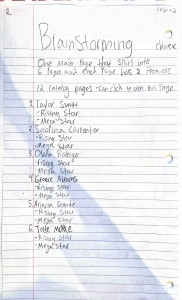 Brainstorming
One Main Page that Splits into
6 Pages and each Page has 2 Process
12 Catalog Pages - can click to on Page
1. Taylor Swift
- Rising Star
- Mega Star
2. Sabrina Carpenter
- Rising Star
- Mega Star
3. Olivia Rodrigo
- Rising Star
- Mega Star
4. Gracie Abrams
- Rising Star
- Mega Star
5. Ariana Grande
- Rising Star
- Mega Star
6. Tate McRae
- Rising Star
- Mega Star